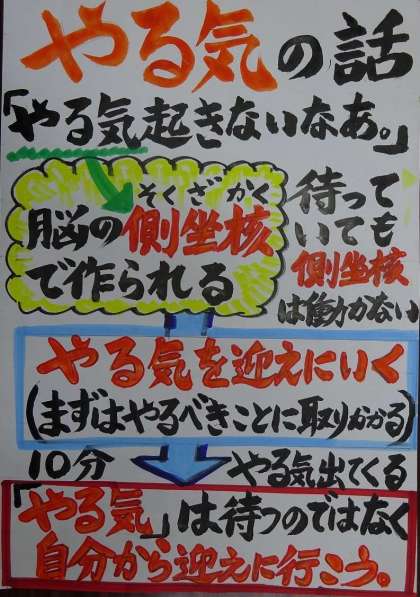 やる気の話
「やる気起きないなあ。」
そくざかく
脳の側坐核
で作られる
待って
いても
側坐核
は働かない
やる気を迎えにいく
(まずはやるべきことに取りかかる)
10分
やる気出てくる
「やる気」は待つのではなく
自分から迎えに行こう。